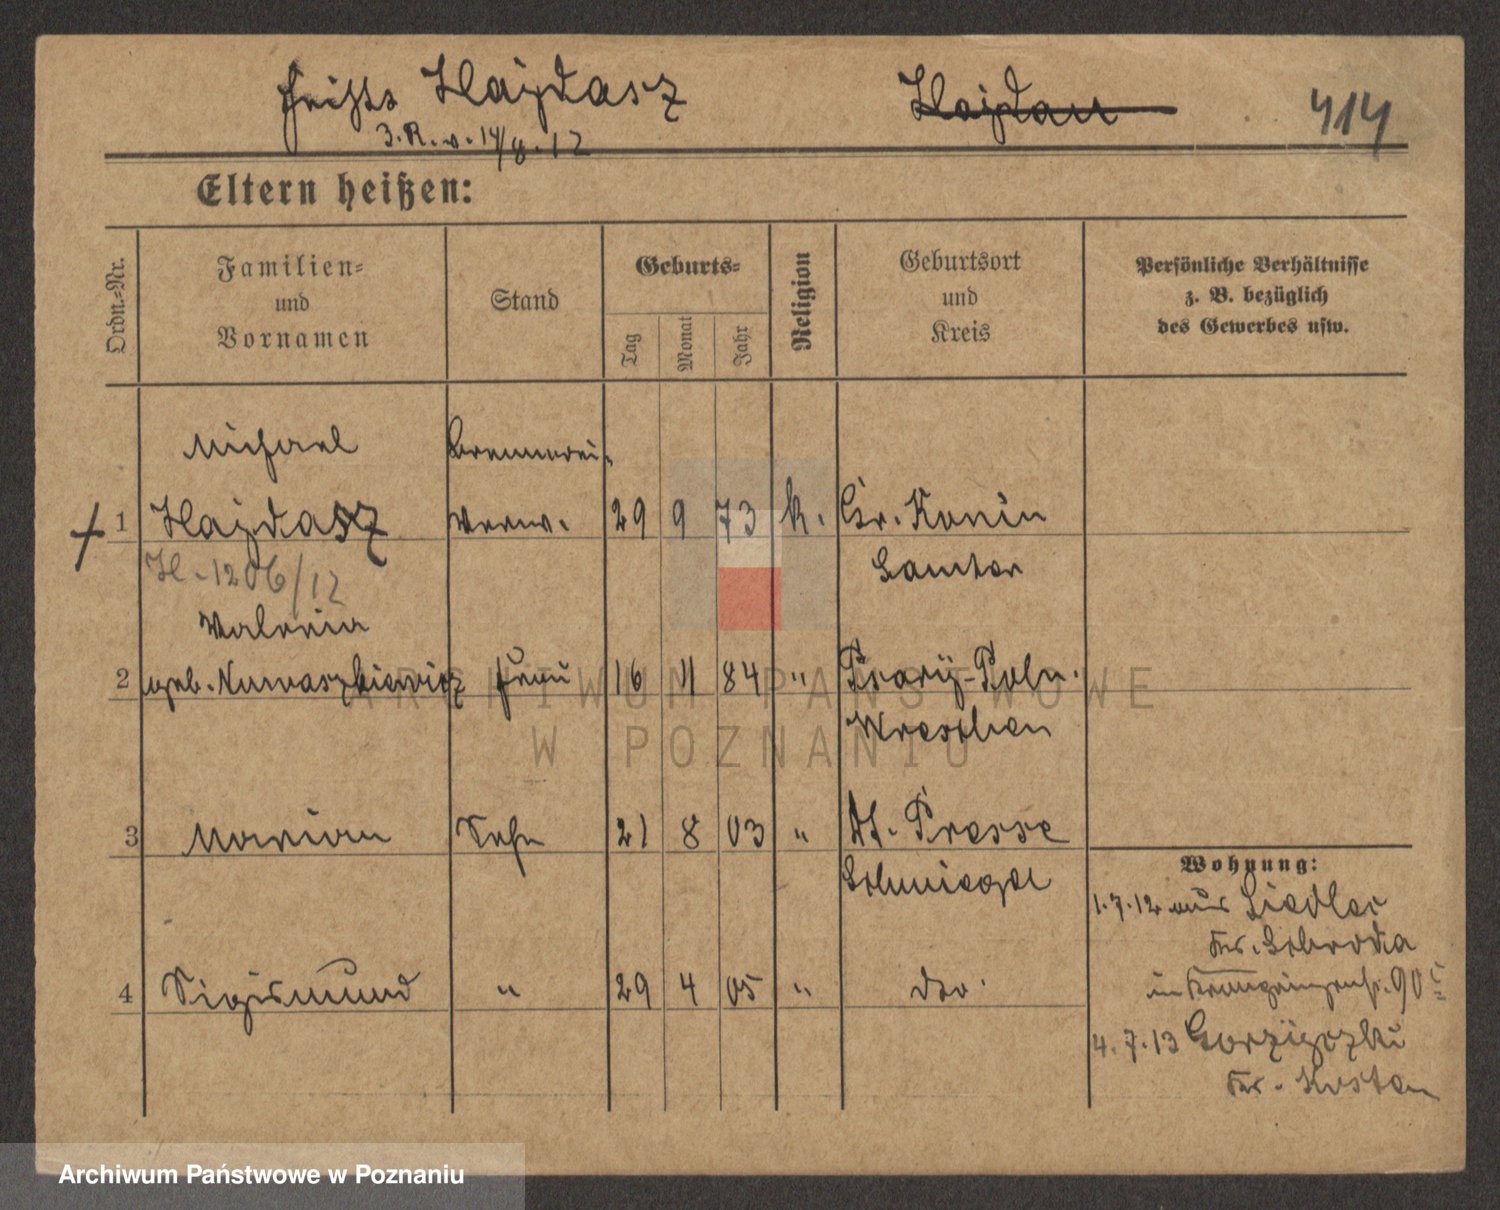 heißt Hajdasz Hajdan 414
Z. R. v. 14/8. 12
Eltern heißen:
Ordn.-Nr. Familien- und Vornamen Stand Geburts- Tag Monat Jahr Religion Geburtsort und Kreis Persönliche Verhältnisse z. B. bezüglich des Gewerbes usw.
Michael Brennerei-
1 Hajdasz Verw. 29 9 73 k. Gr. Konin
H. 1206/12 Samter
Waleria
2 geb. Nowaszkiewicz Frau 16 11 84 " Psary-Poln.
Wreschen
3 Marian Sohn 21 8 03 " Dt. Presse
Schmiegel
4 Sigismund " 29 4 05 " dto.
Wohnung:
1.7.12 aus Siedlec
Kr. Schroda
in Kronprinzenstr. 90
4.7.13 Gorzyczki
Kr. Kosten
ARCHIWUM PAŃSTWOWE
W POZNANIU
Archiwum Państwowe w Poznaniu